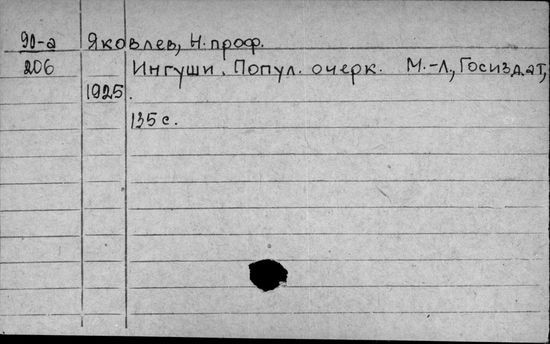 90-а Яковлев, Н. проф.
206 Ингуши. Попул. очерк. М.-Л., Госиздат,
1925.
135 с.